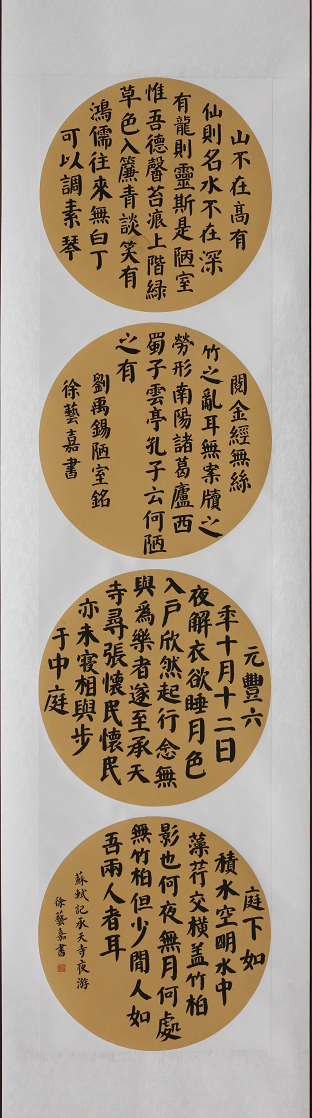 山不在高有
仙則名水不在深
有龍則靈斯是陋室
惟吾德馨苔痕上階緑
草色入簾青談笑有
鴻儒往來無白丁
可以調素琴
閱金經無絲
竹之亂耳無案牘之
勞形南陽諸葛廬西
蜀子雲亭孔子云何陋
之有
劉禹錫陋室銘
徐藝嘉書
元豐六
年十月十二日
夜解衣欲睡月色
入戶欣然起行念無
與爲樂者遂至承天
寺尋張懷民懷民
亦未寝相與步
于中庭
庭下如
積水空明水中
藻荇交橫盖竹柏
影也何夜無月何處
無竹柏但少閒人如
吾兩人者耳
蘇軾記承天寺夜游
徐藝嘉書